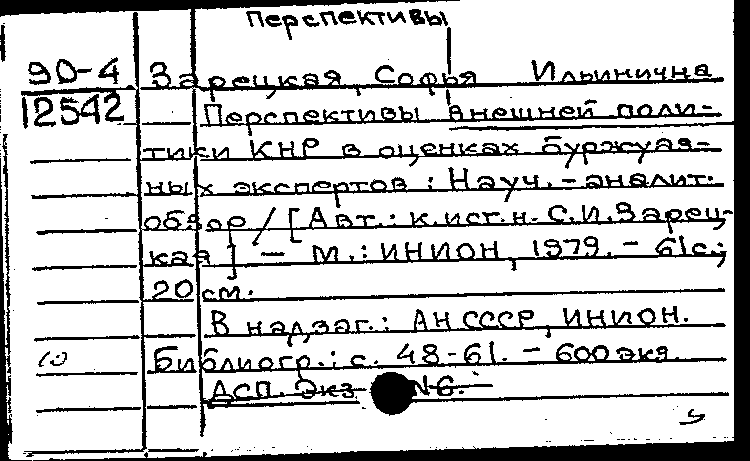 Перспективы
90-4 Зарецкая, Софья Ильинична
12542 Перспективы внешней поли-
тики КНР в оценках буржуаз-
ных экспертов : Науч.-аналит.
обзор / [Авт.: к.ист.н. С.И.Зарец-
кая] - М.: ИНИОН, 1979. - 61с.;
20 см.
В надзаг.: АН СССР, ИНИОН.
Библиогр.: с. 48-61. - 600 экз.
ДСП. Экз № 6.